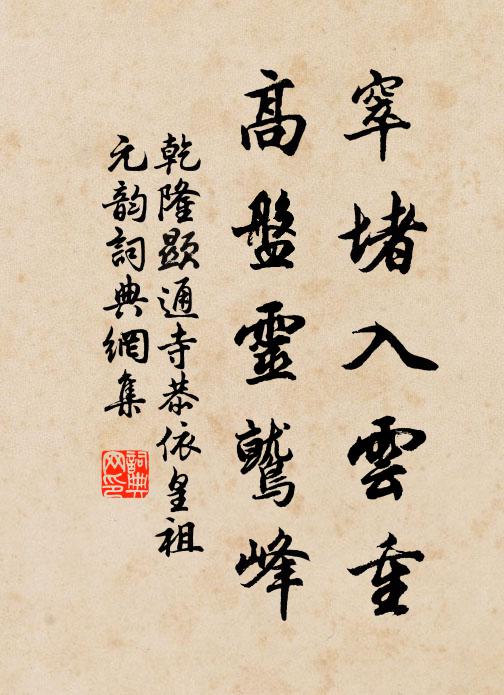 窣堵入雲重
高盤靈鷲峰
乾隆顯通寺恭依皇祖
元韵詞典網集
詞典
网印